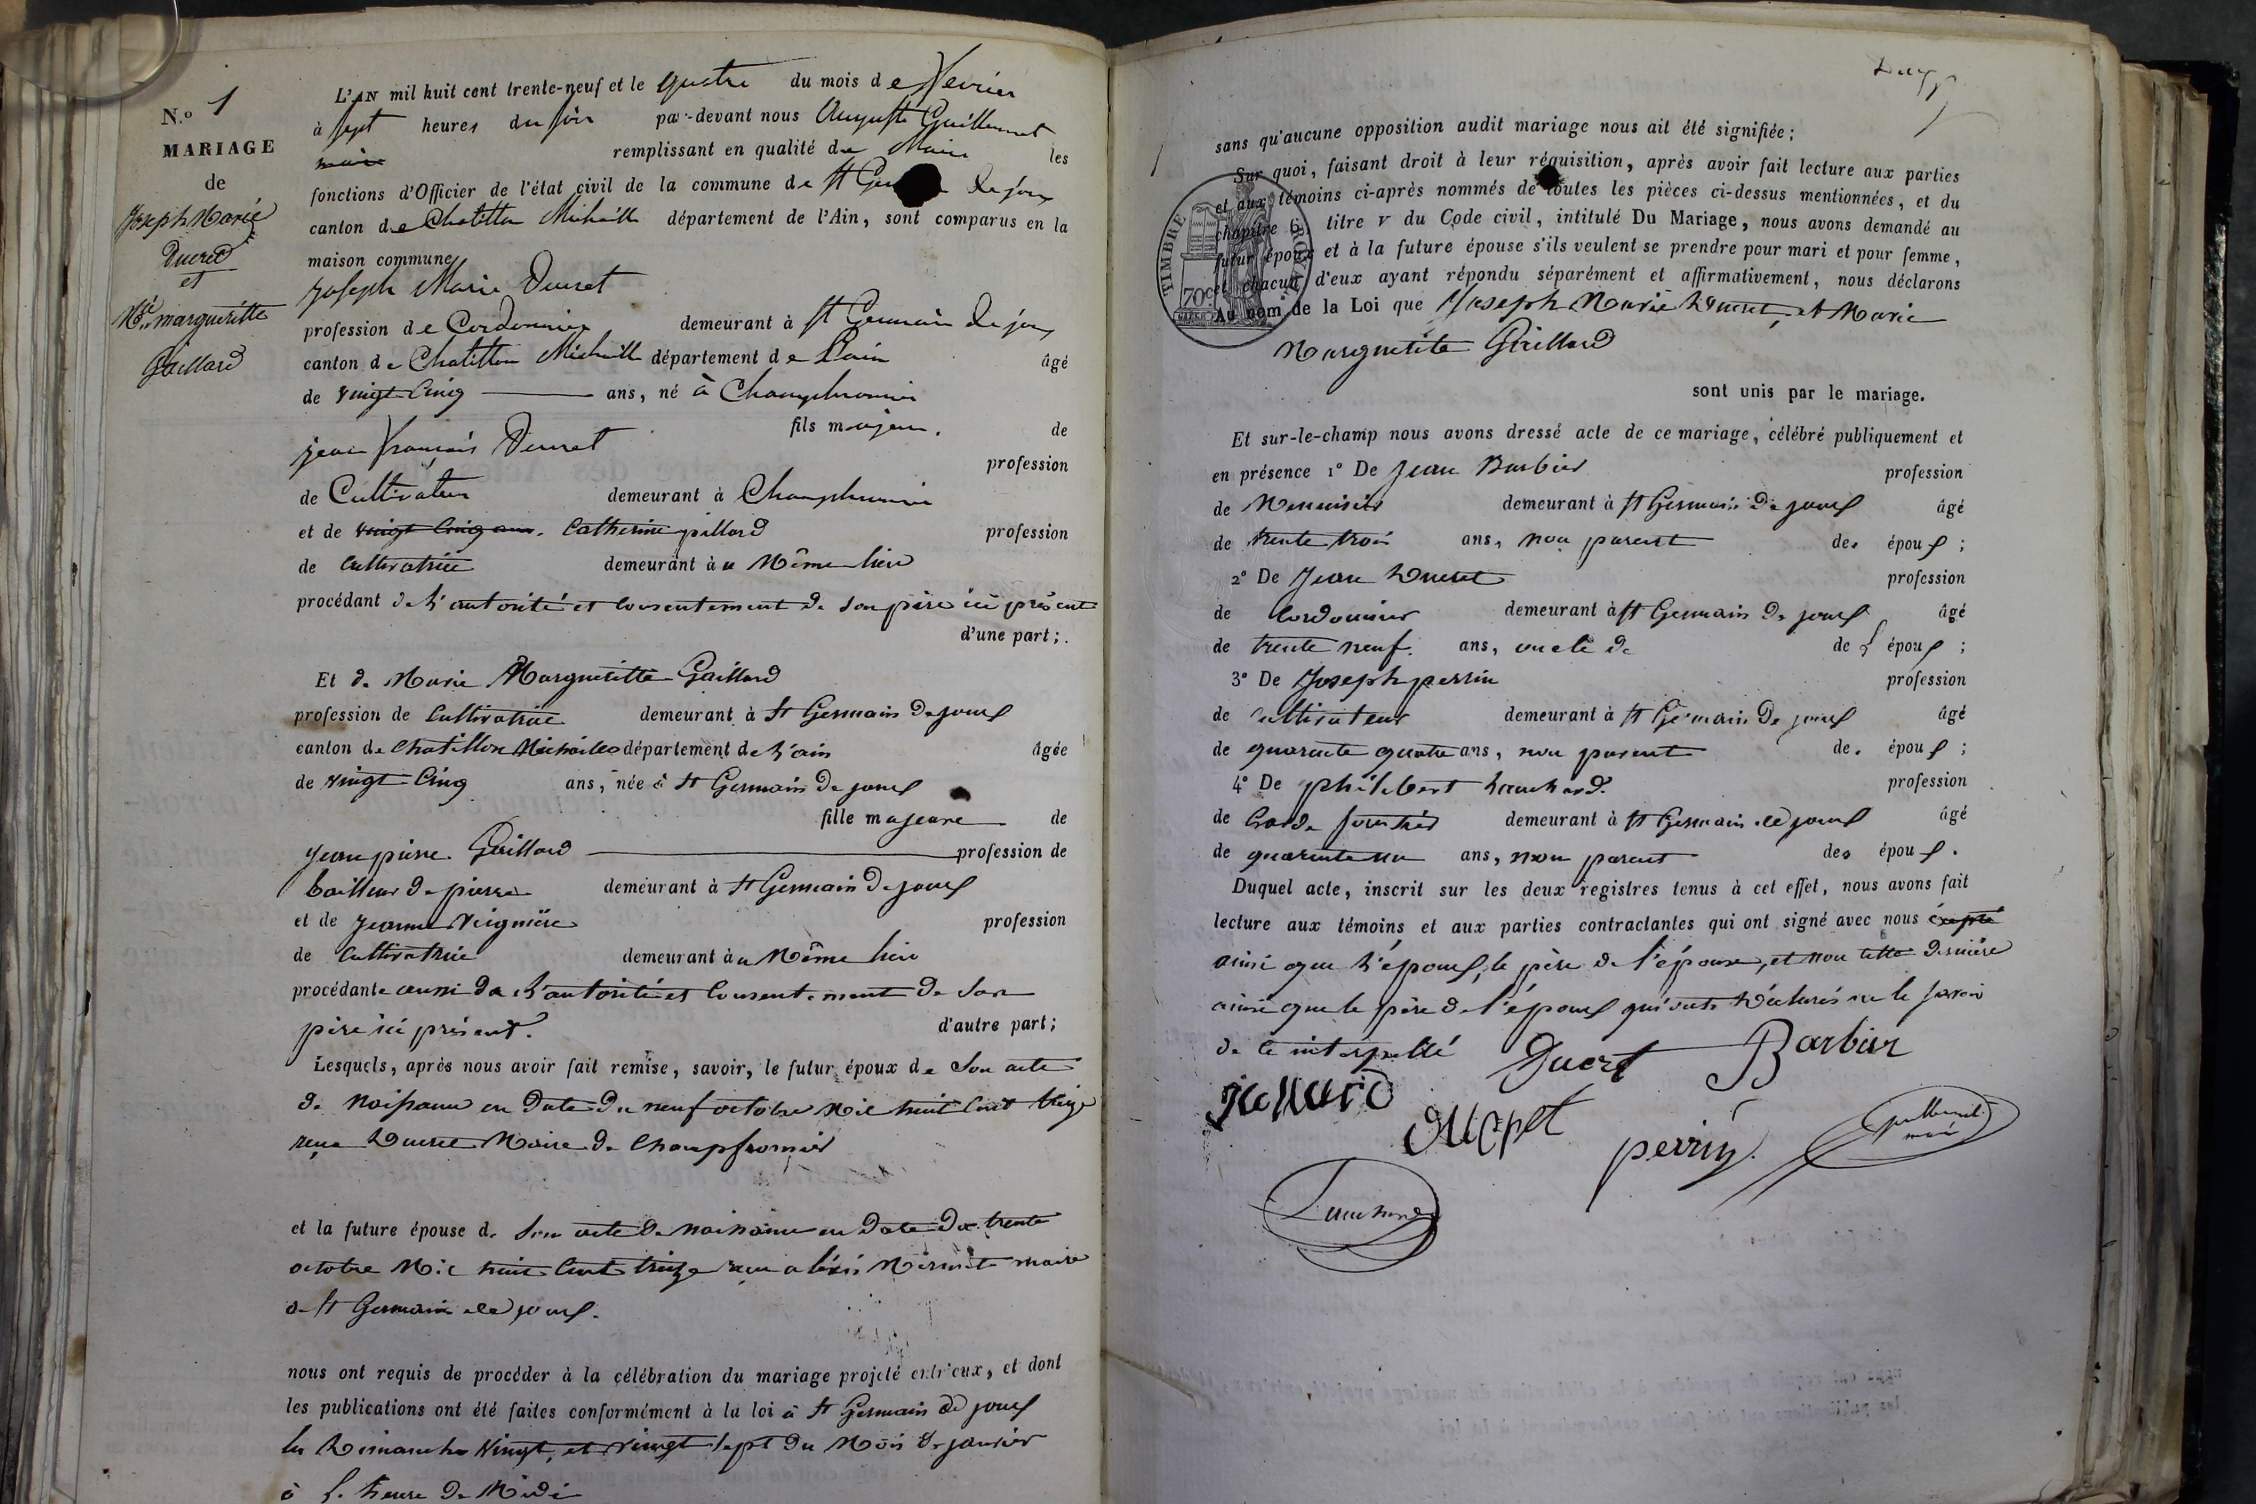 N.o 1
MARIAGE
de
Joseph Marie
Ducret
et
Mie margueritte
Gaillard
L'AN mil huit cent trente-neuf et le quatre du mois de fevrier
à sept heures du soir par-devant nous Auguste Guillermet
maire remplissant en qualité de Maire les
fonctions d'Officier de l'état civil de la commune de St Ger de joux
canton de Chatillon Michaille département de l'Ain, sont comparus en la
maison commune
Joseph Marie Ducret
profession de Cordonnier demeurant à St Germain de joux
canton de Chatillon Michaille département de L'ain âgé
de vingt Cinq ans, né à Champfromier
fils majeur. de
jean françois Ducret
profession
de Cultivateur demeurant à Champfromier
et de vingt Cinq ans. Catherine pillard profession
de Cultivatrice demeurant au Même lieu
procédant de L'autorité et Consentement de Son père ici présent
d'une part;
Et de Marie Marguerite Gaillard
profession de Cultivatrice demeurant à St Germain De joux
canton de Chatillon Michaille département de L'ain âgée
de vingt Cinq ans, née à St Germain De joux
fille majeure de
Jean pierre Gaillard profession de
tailleur de pierre demeurant à St Germain De joux
et de Jeanne profession
de Cultivatrice demeurant au Même lieu
procédante aussi de L'autorité et Consentement de Son
père ici présent. d'autre part;
Lesquels, après nous avoir fait remise, savoir, le futur époux de Son acte
de Naissance en Date du neuf octobre Mil huit Cent treize
reçu Ducret Maire de Champfromier
et la future épouse de Son acte de Naissance en Date du trente
octobre Mil huit Cent treize reçu aléxis Mermet maire
de St Germain de joux.
nous ont requis de procéder à la célébration du mariage projeté entr'eux, et dont
les publications ont été faites conformément à la loi à St Germain de joux
les Dimanches Vingt, et vingt Sept du Mois de janvier
à L'heure de Midi
sans qu'aucune opposition audit mariage nous ait été signifiée;
Sur quoi, faisant droit à leur réquisition, après avoir fait lecture aux parties
et aux témoins ci-après nommés de toutes les pièces ci-dessus mentionnées, et du
chapitre 6 titre V du Code civil, intitulé Du Mariage, nous avons demandé au
futur époux et à la future épouse s'ils veulent se prendre pour mari et pour femme,
et chacun d'eux ayant répondu séparément et affirmativement, nous déclarons
Au nom de la Loi que Joseph Marie Ducret, et Marie
Marguerite Gaillard
TIMBRE ROYAL
70c
sont unis par le mariage.
Et sur-le-champ nous avons dressé acte de ce mariage, célébré publiquement et
en présence 1° De Jean Barbier profession
de Menuisier demeurant à St Germain De joux âgé
de trente trois ans, non parent des époux;
2° De Jean Ducret profession
de Cordonnier demeurant à St Germain De joux âgé
de trente neuf. ans, oncle de de L'époux;
3° De Joseph perrin profession
de Cultivateur demeurant à St Germain De joux âgé
de quarante quatre ans, non parent des époux;
4° De philibert profession
de Garde forestier demeurant à St Germain de joux âgé
de quarante un ans, non parent des époux.
Duquel acte, inscrit sur les deux registres tenus à cet effet, nous avons fait
lecture aux témoins et aux parties contractantes qui ont signé avec nous excepté
ainsi que L'époux, le père de l'épouse, et non Cette dernière
ainsi que le père de l'époux qui ont Déclarés ne le Savoir
de ce interpellé
Ducret Barbier
Ducret
perrin
guillermet
maire